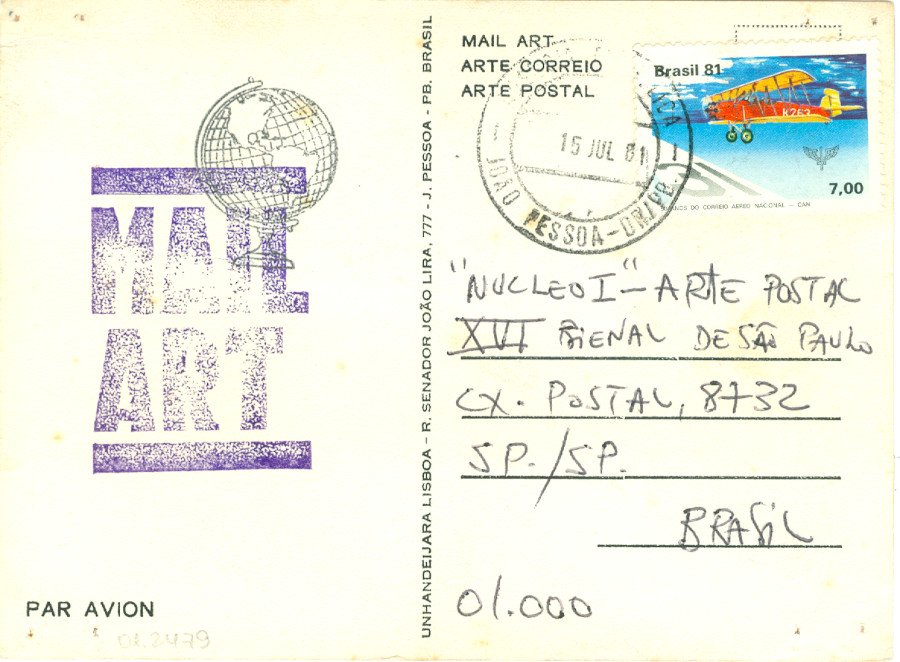 MAIL
ART
PAR AVION
01.2479
UNHANDEIJARA LISBOA - R. SENADOR JOÃO LIRA, 777 - J. PESSOA - PB. BRASIL
MAIL ART
ARTE CORREIO
ARTE POSTAL
15 JUL 81
JOÃO PESSOA-DR/PB.
Brasil 81
K263
7,00
ANOS DO CORREIO AÉREO NACIONAL - CAN
"NUCLEO I" - ARTE POSTAL
XVI BIENAL DE SÃO PAULO
CX. POSTAL, 8732
SP./SP.
BRASIL
01.000